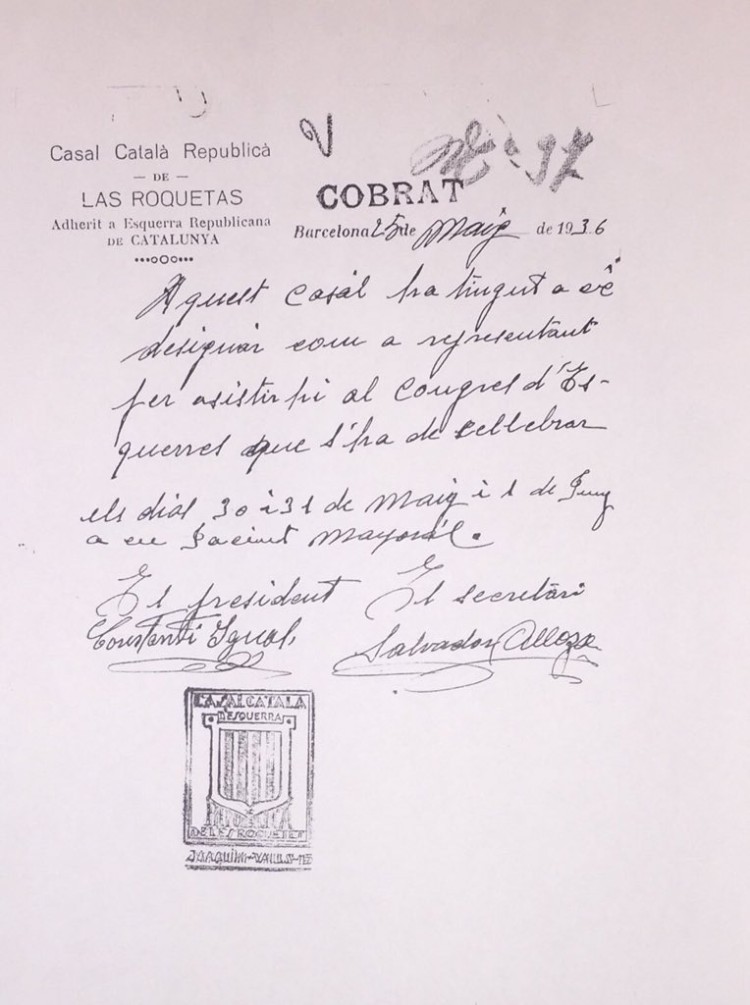 Casal Català Republicà
— DE —
LAS ROQUETAS
Adherit a Esquerra Republicana
DE CATALUNYA
Nº 97
COBRAT
Barcelona 25 de Maig de 1936
Aquest Casal ha tingut a bé
designar com a representant
per asistir hi al Congres d'Es-
querres que s'ha de cellebrar
els dias 30 i 31 de Maig i 1 de Juny
a en Jacint Mayoral.
El president El secretari
Constanti Igual, Salvador Alloza
CASAL CATALA
D'ESQUERRA
DE LES ROQUETES
JOAQUIM VALLS